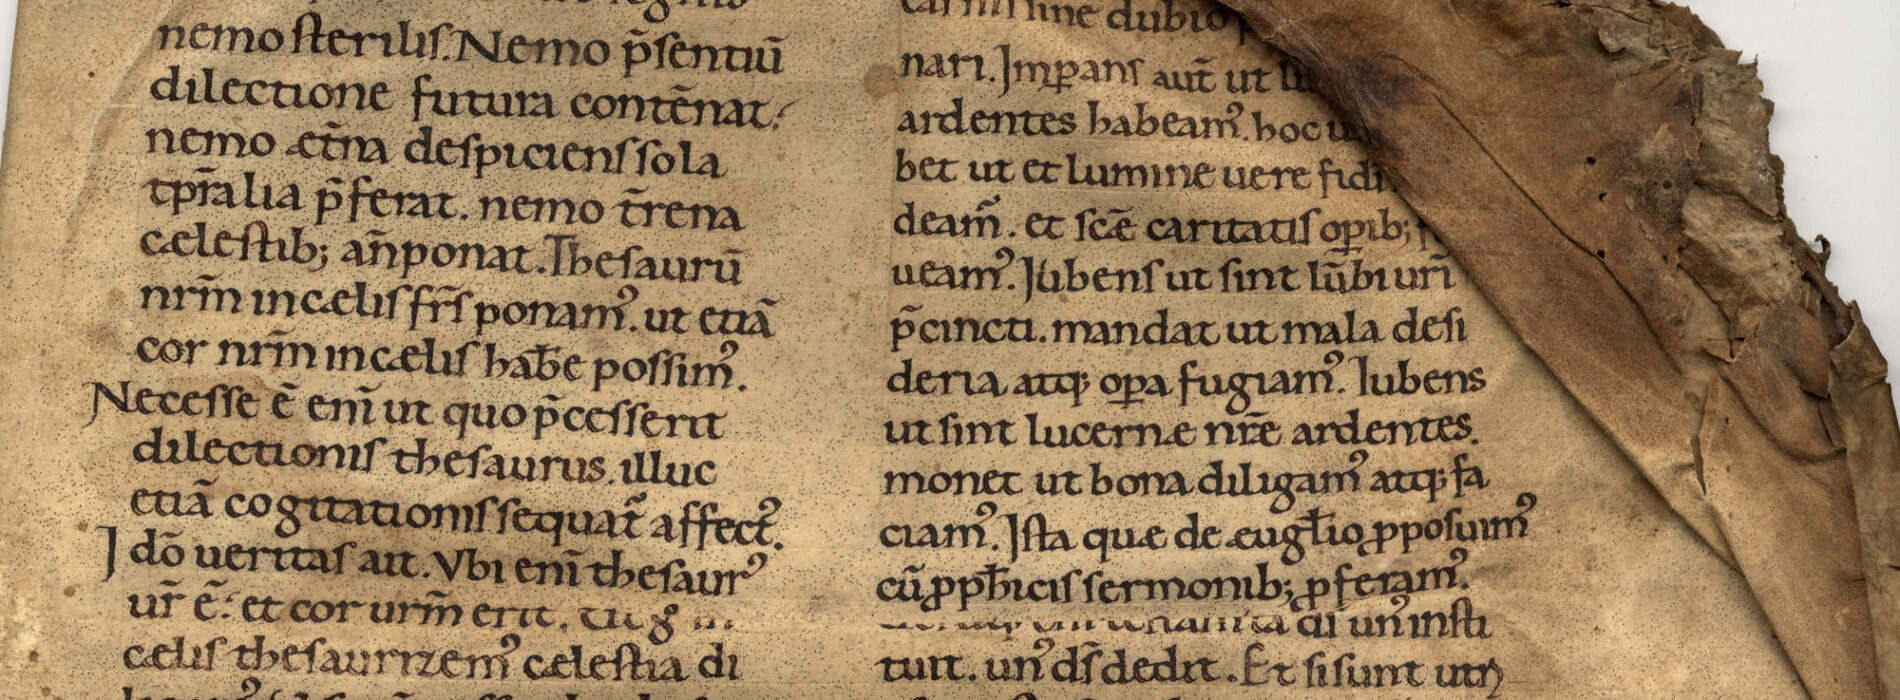 nemo sterilis. Nemo p̄sentiū
dilectione futura contēnat.
nemo æt̄na despiciens sola
tp̄ralia p̄ferat. nemo t̄rena
cælestib; an̄ponat. Thesaurū
nrm̄ in cælis frs̄ ponam᾿. ut etiā
cor nrm̄ in cælis hab̄e possim᾿.
Necesse ē enī ut quo p̄cesserit
dilectionis thesaurus. illuc
etiā cogitationis sequat̄ affect᾿.
Idō ueritas ait. Vbi enī thesaur᾿
ur̄ ē. et cor urm̄ erit.
cælis thesaurizem᾿ cælestia di
sine dubio
nari. Imꝑans aut̄ ut
ardentes habeam᾿. hoc
bet ut et lumine uere fidi
deam̄. et scē caritatis oꝑib;
ueam᾿. Iubens ut sint lūbi urī
p̄cincti. mandat ut mala desi
deria atq; oꝑa fugiam᾿. Iubens
ut sint lucernæ nrē ardentes.
monet ut bona diligam᾿ atq; fa
ciam᾿. Ista quæ de æugl̄io ꝓposuim᾿
cū ꝓph̄icis sermonib; ꝓferam᾿.
un᾿ insti
tuit. un᾿ ds̄ dedit. Et si sunt